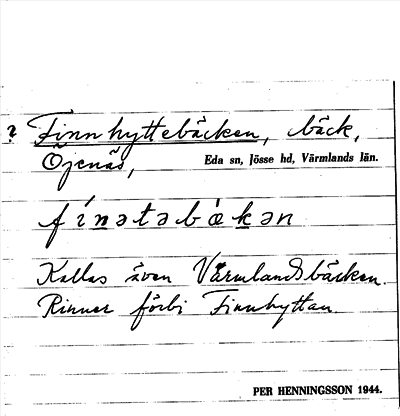 ? Finnhyttebäcken, bäck,
Öjenäs, Eda sn, Jösse hd, Värmlands län.
fínətəbækən
Kallas även Värmlandsbäcken.
Rinner förbi Finnhyttan.
PER HENNINGSSON 1944.